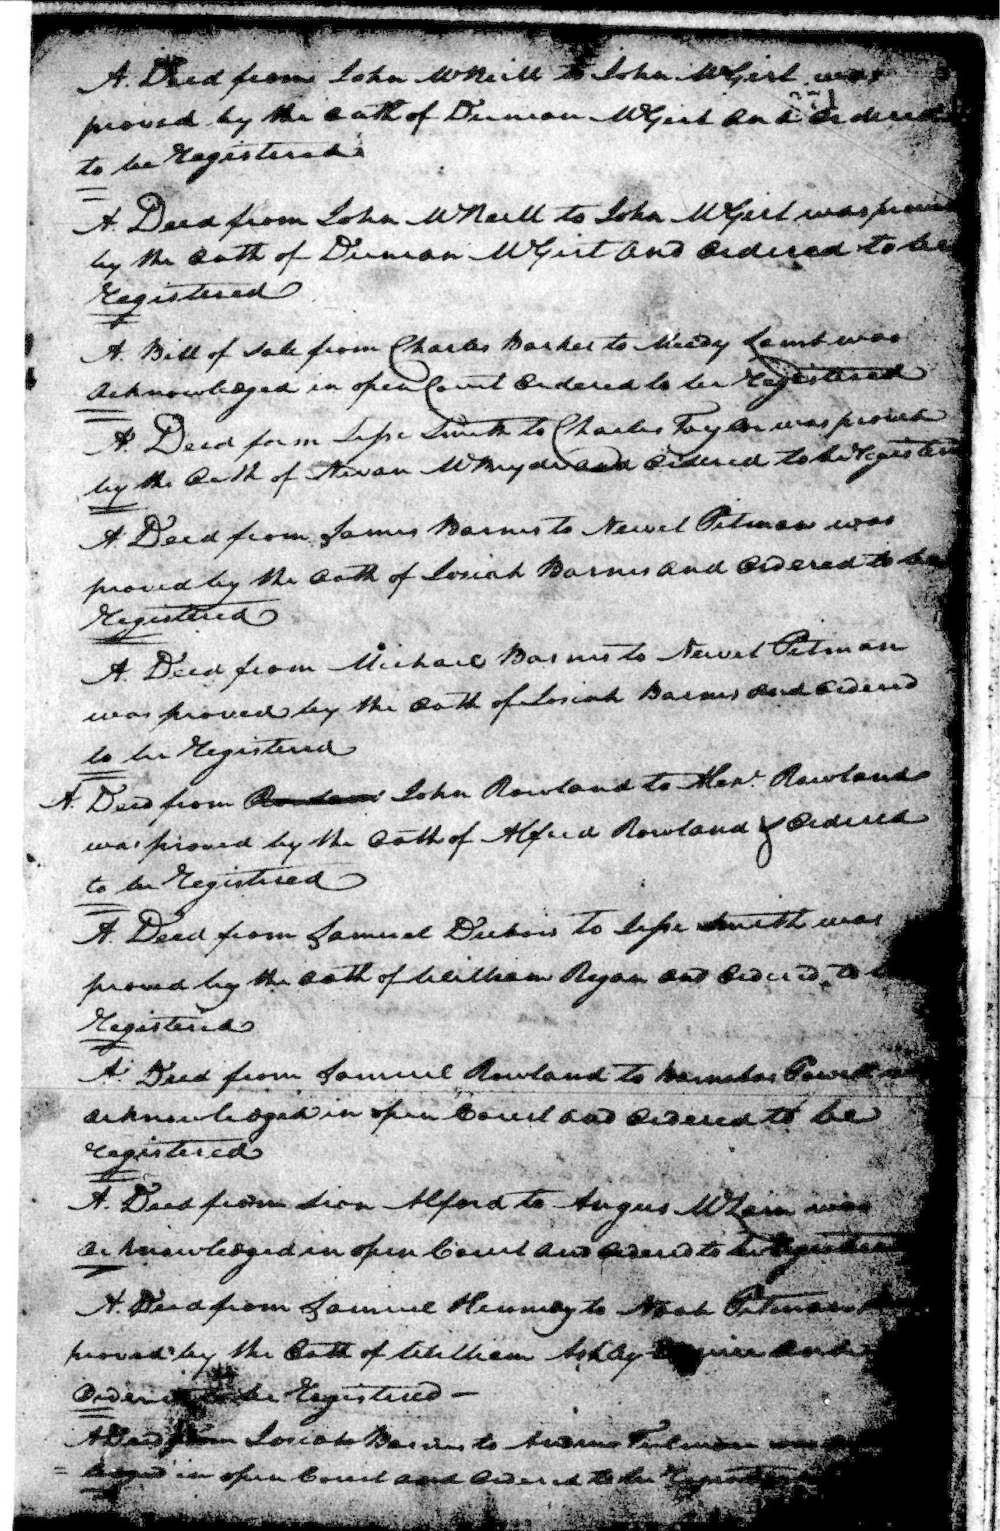 A. Deed from John McNeill to John McGirt was
proved by the oath of Duncan McGirt and Ordered
to be Registered.
A. Deed from John McNeill to John McGirt was proved
by the Oath of Duncan McGirt and Ordered to be
Registered
A. Bill of Sale from Charles Barker to Needy Lamb was
Acknowledged in open Court Ordered to be Registered
A Deed form Jesse Smith to Charles Taylor was proved
by the Oath of McBryde and Ordered to be Register
A. Deed from James Barnes to Newel Pitman was
proved by the oath of Josiah Barnes and Ordered to be
Registered
A. Deed from Michael Barnes to Newel Pitman
was proved by the oath of Josiah Barnes and Ordered
to be Registered
A. Deed from John Rowland to Alexr. Rowland
was proved by the oath of Alfred Rowland & Ordered
to be Registered
A. Deed from Samuel to Jesse Smith was
proved by the oath of William Ryan and Ordered to
Registered
A. Deed from Samuel Rowland to Barnabas Powell
acknowledged in open Court and Ordered to be
registered
A. Deed from Sion Alford to Angus was
acknowledged in open Court and Ordered to be Registered
A. Deed from Samuel to Noah Pitman
proved by the Oath of William Ashley and
Ordered to be Registered —
A Deed from Josiah Barnes to
in open Court and Ordered to be